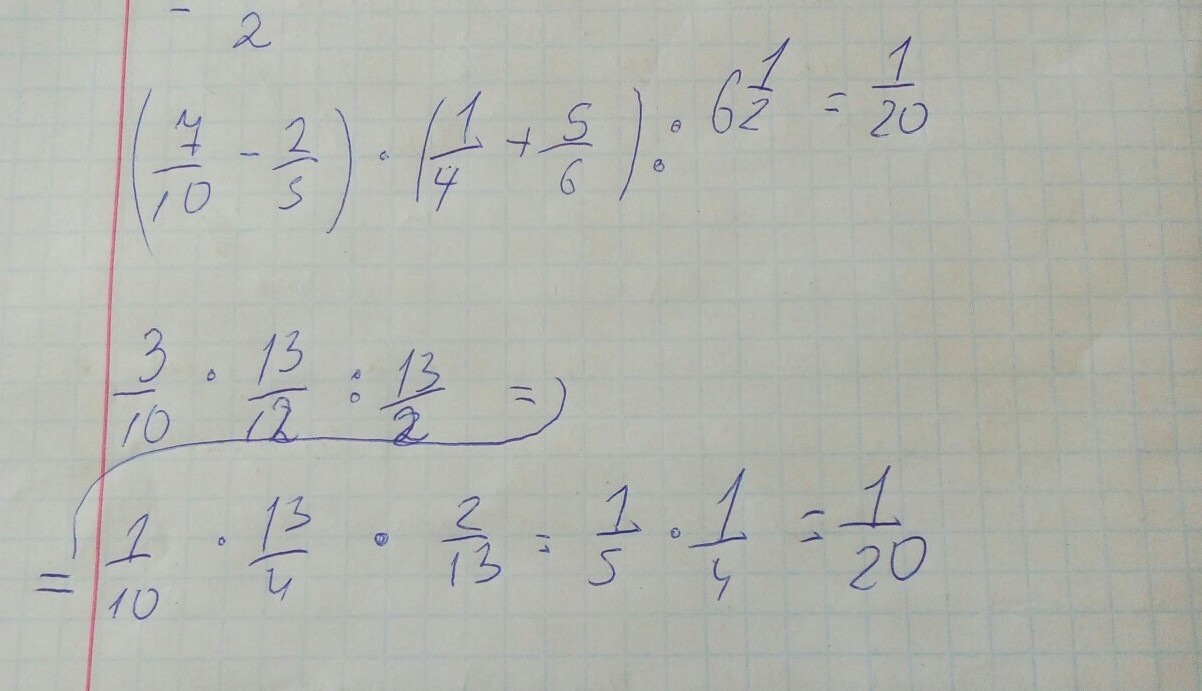 - 2
(7/10 - 2/5) · (1/4 + 5/6) : 6 1/2 = 1/20
3/10 · 13/12 : 13/2 =
= 1/10 · 13/4 · 2/13 = 1/5 · 1/4 = 1/20